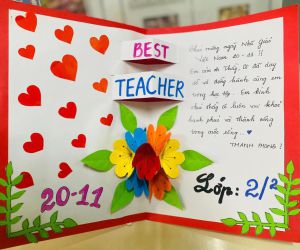 BEST
TEACHER
Chúc mừng ngày Nhà giáo
Việt Nam 20-11 !!
Em cảm ơn thầy, cô đã dạy
dỗ và đồng hành cùng em
trong học tập. Em kính
chúc thầy cô luôn vui, khoẻ
hạnh phúc và thành công
trong cuộc sống...
THANH PHONG!
20-11
Lớp: 2/2